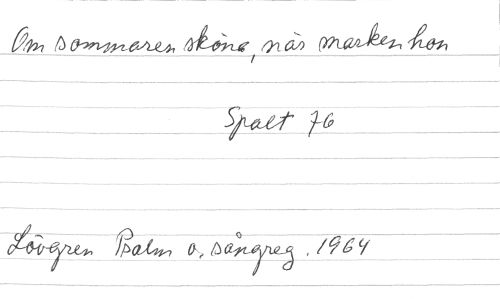 Om sommaren sköna, när marken hon
Spalt 76
Lövgren Psalm o. sångreg. 1964